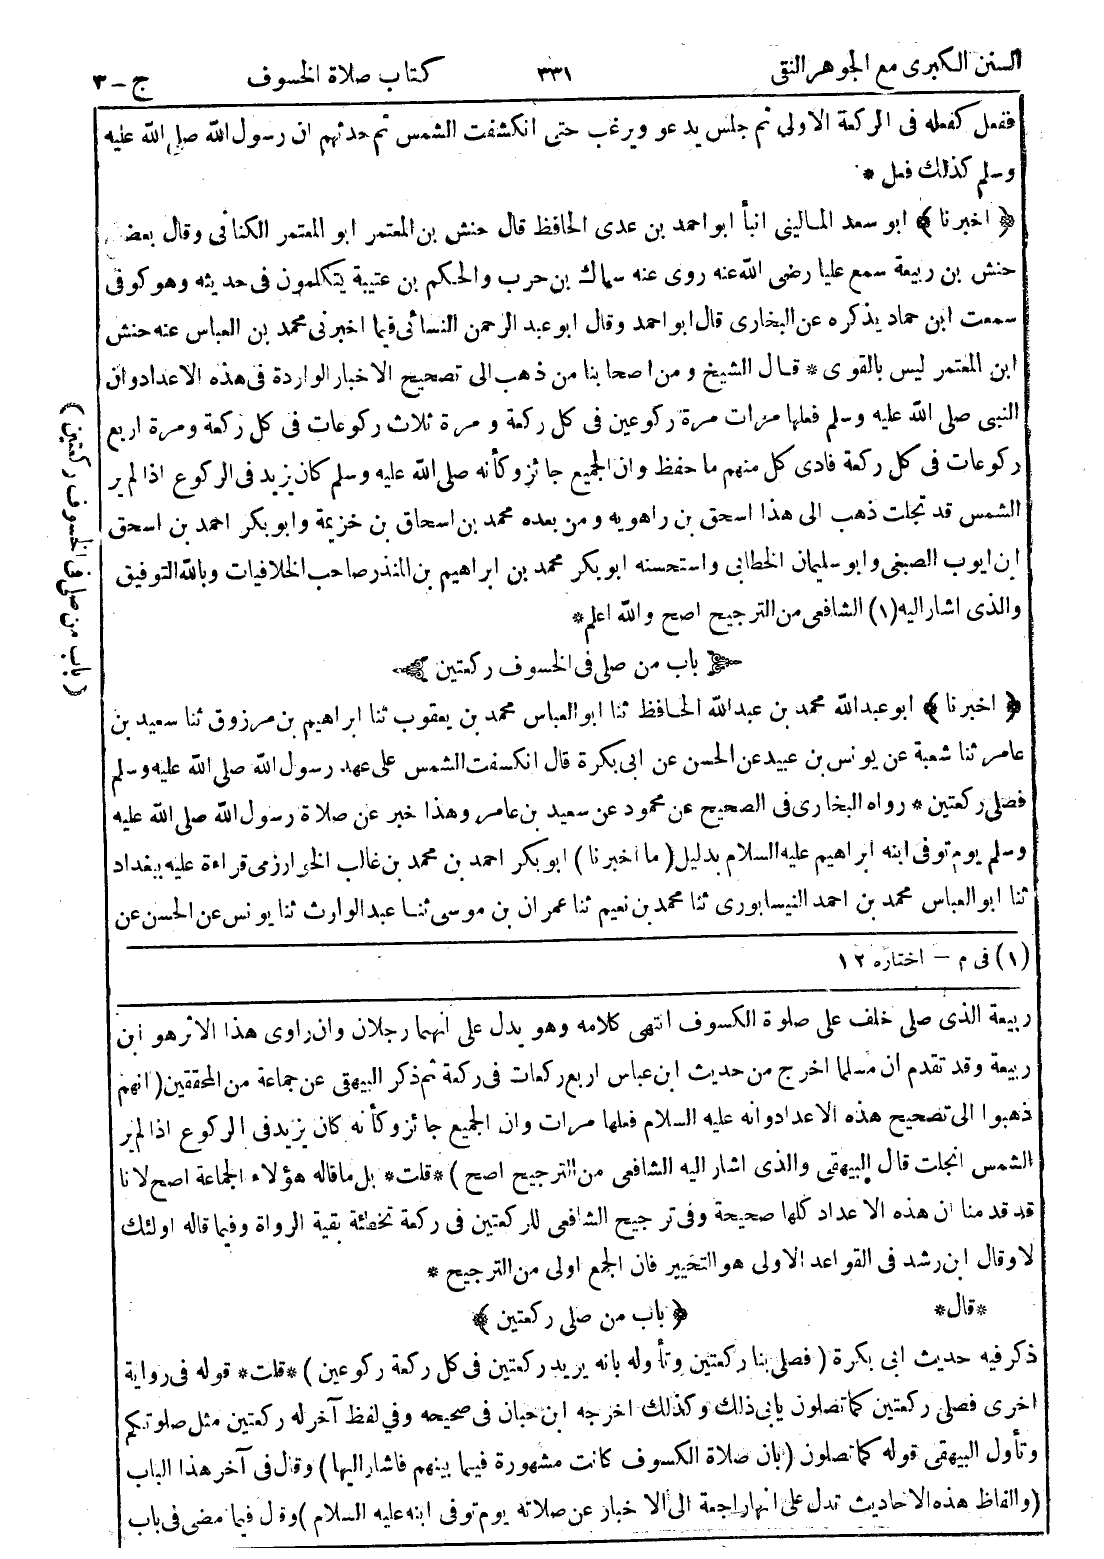 السنن الكبرى مع الجوهر النقى ٣٣١ كتاب صلاة الخسوف ج - ٣
ففعل كفعله فى الركعة الاولى ثم جلس يدعو ويرغب حتى انكشفت الشمس ثم حدثهم ان رسول الله صلى الله عليه
وسلم كذلك فعل *
﴿ اخبرنا ﴾ ابو سعد المالينى انبأ ابو احمد بن عدى الحافظ قال حنش بن المعتمر ابو المعتمر الكنانى وقال بعضهم
حنش بن ربيعة سمع عليا رضى الله عنه روى عنه سماك بن حرب والحكم بن عتيبة يتكلمون فى حديثه وهو كوفى
سمعت ابن حماد يذكره عن البخارى قال ابو احمد وقال ابو عبد الرحمن النسائى فيما اخبرنى محمد بن العباس عنه حنش
ابن المعتمر ليس بالقوى * قال الشيخ ومن اصحابنا من ذهب الى تصحيح الاخبار الواردة فى هذه الاعداد وان
النبى صلى الله عليه وسلم فعلها مرات مرة ركوعين فى كل ركعة ومرة ثلاث ركوعات فى كل ركعة ومرة اربع
ركوعات فى كل ركعة فادى كل منهم ما حفظ وان الجميع جائز وكأنه صلى الله عليه وسلم كان يزيد فى الركوع اذا لم ير
الشمس قد تجلت ذهب الى هذا اسحق بن راهويه ومن بعده محمد بن اسحاق بن خزيمة وابو بكر احمد بن اسحق
ابن ايوب الصبغى وابو سليمان الخطابى واستحسنه ابو بكر محمد بن ابراهيم بن المنذر صاحب الخلافيات وبالله التوفيق
والذى اشار اليه (١) الشافعى من الترجيح اصح والله اعلم *
باب من صلى فى الخسوف ركعتين
( باب من صلى فى الخسوف ركعتين )
﴿ اخبرنا ﴾ ابو عبد الله محمد بن عبد الله الحافظ ثنا ابو العباس محمد بن يعقوب ثنا ابراهيم بن مرزوق ثنا سعيد بن
عامر ثنا شعبة عن يونس بن عبيد عن الحسن عن ابى بكرة قال انكسفت الشمس على عهد رسول الله صلى الله عليه وسلم
فصلى ركعتين * رواه البخارى فى الصحيح عن محمود عن سعيد بن عامر وهذا خبر عن صلاة رسول الله صلى الله عليه
وسلم يوم توفى ابنه ابراهيم عليه السلام بدليل ( ما اخبرنا ) ابو بكر احمد بن محمد بن غالب الخوارزمى قراءة عليه ببغداد
ثنا ابو العباس محمد بن احمد النيسابورى ثنا محمد بن نعيم ثنا عمران بن موسى ثنا عبد الوارث ثنا يونس عن الحسن عن
(١) فى م - اختاره ١٢
ربيعة الذى صلى خلف على صلوة الكسوف انتهى كلامه وهو يدل على انهما رجلان وان راوى هذا الاثر هو ابن
ربيعة وقد تقدم ان مسلما اخرج من حديث ابن عباس اربع ركعات فى ركعة ثم ذكر البيهقى عن جماعة من المحققين ( انهم
ذهبوا الى تصحيح هذه الاعداد وانه عليه السلام فعلها مرات وان الجميع جائز وكأنه كان يزيد فى الركوع اذا لم ير
الشمس انجلت قال البيهقى والذى اشار اليه الشافعى من الترجيح اصح ) * قلت * بل ما قاله هؤلاء الجماعة اصح لانا
قد قدمنا ان هذه الاعداد كلها صحيحة وفى ترجيح الشافعى للركعتين فى ركعة تخطئة بقية الرواة وفيما قاله اولئك
لا وقال ابن رشد فى القواعد الاولى هو التخيير فان الجمع اولى من الترجيح *
* قال * ﴿ باب من صلى ركعتين ﴾
ذكر فيه حديث ابى بكرة ( فصلى بنا ركعتين وتأوله بانه يريد ركعتين فى كل ركعة ركوعين ) * قلت * قوله فى رواية
اخرى فصلى ركعتين كما تصلون يابى ذلك وكذلك اخرجه ابن حبان فى صحيحه وفي لفظ آخر له ركعتين مثل صلوتكم
وتأول البيهقى قوله كما تصلون ( بان صلاة الكسوف كانت مشهورة فيما بينهم فاشار اليها ) وقال فى آخر هذا الباب
( والفاظ هذه الاحاديث تدل على انها راجعة الى الاخبار عن صلاته يوم توفى ابنه عليه السلام ) وقال فيما مضى فى باب